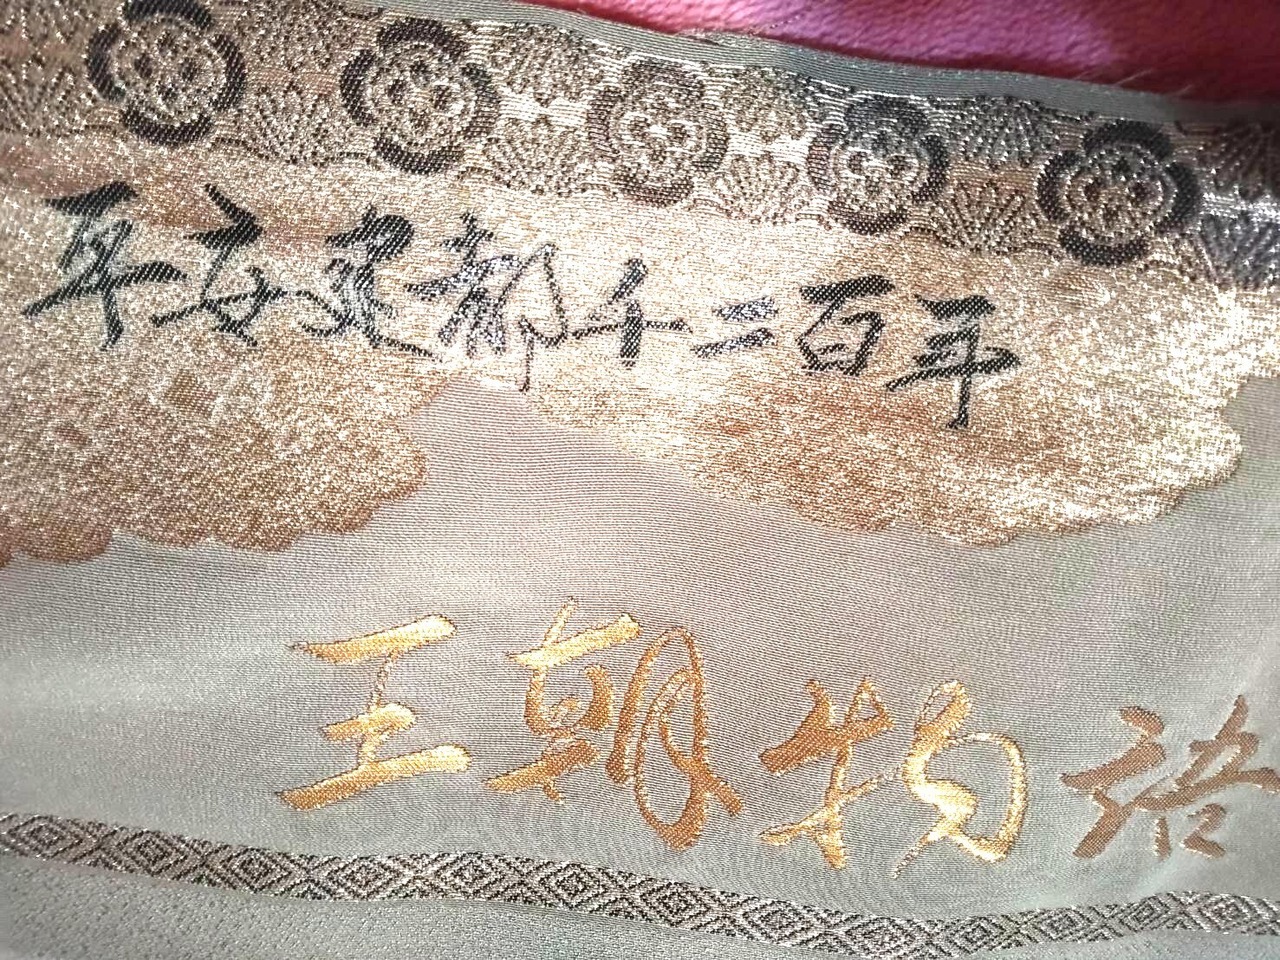 平安建都千二百年
王朝物語